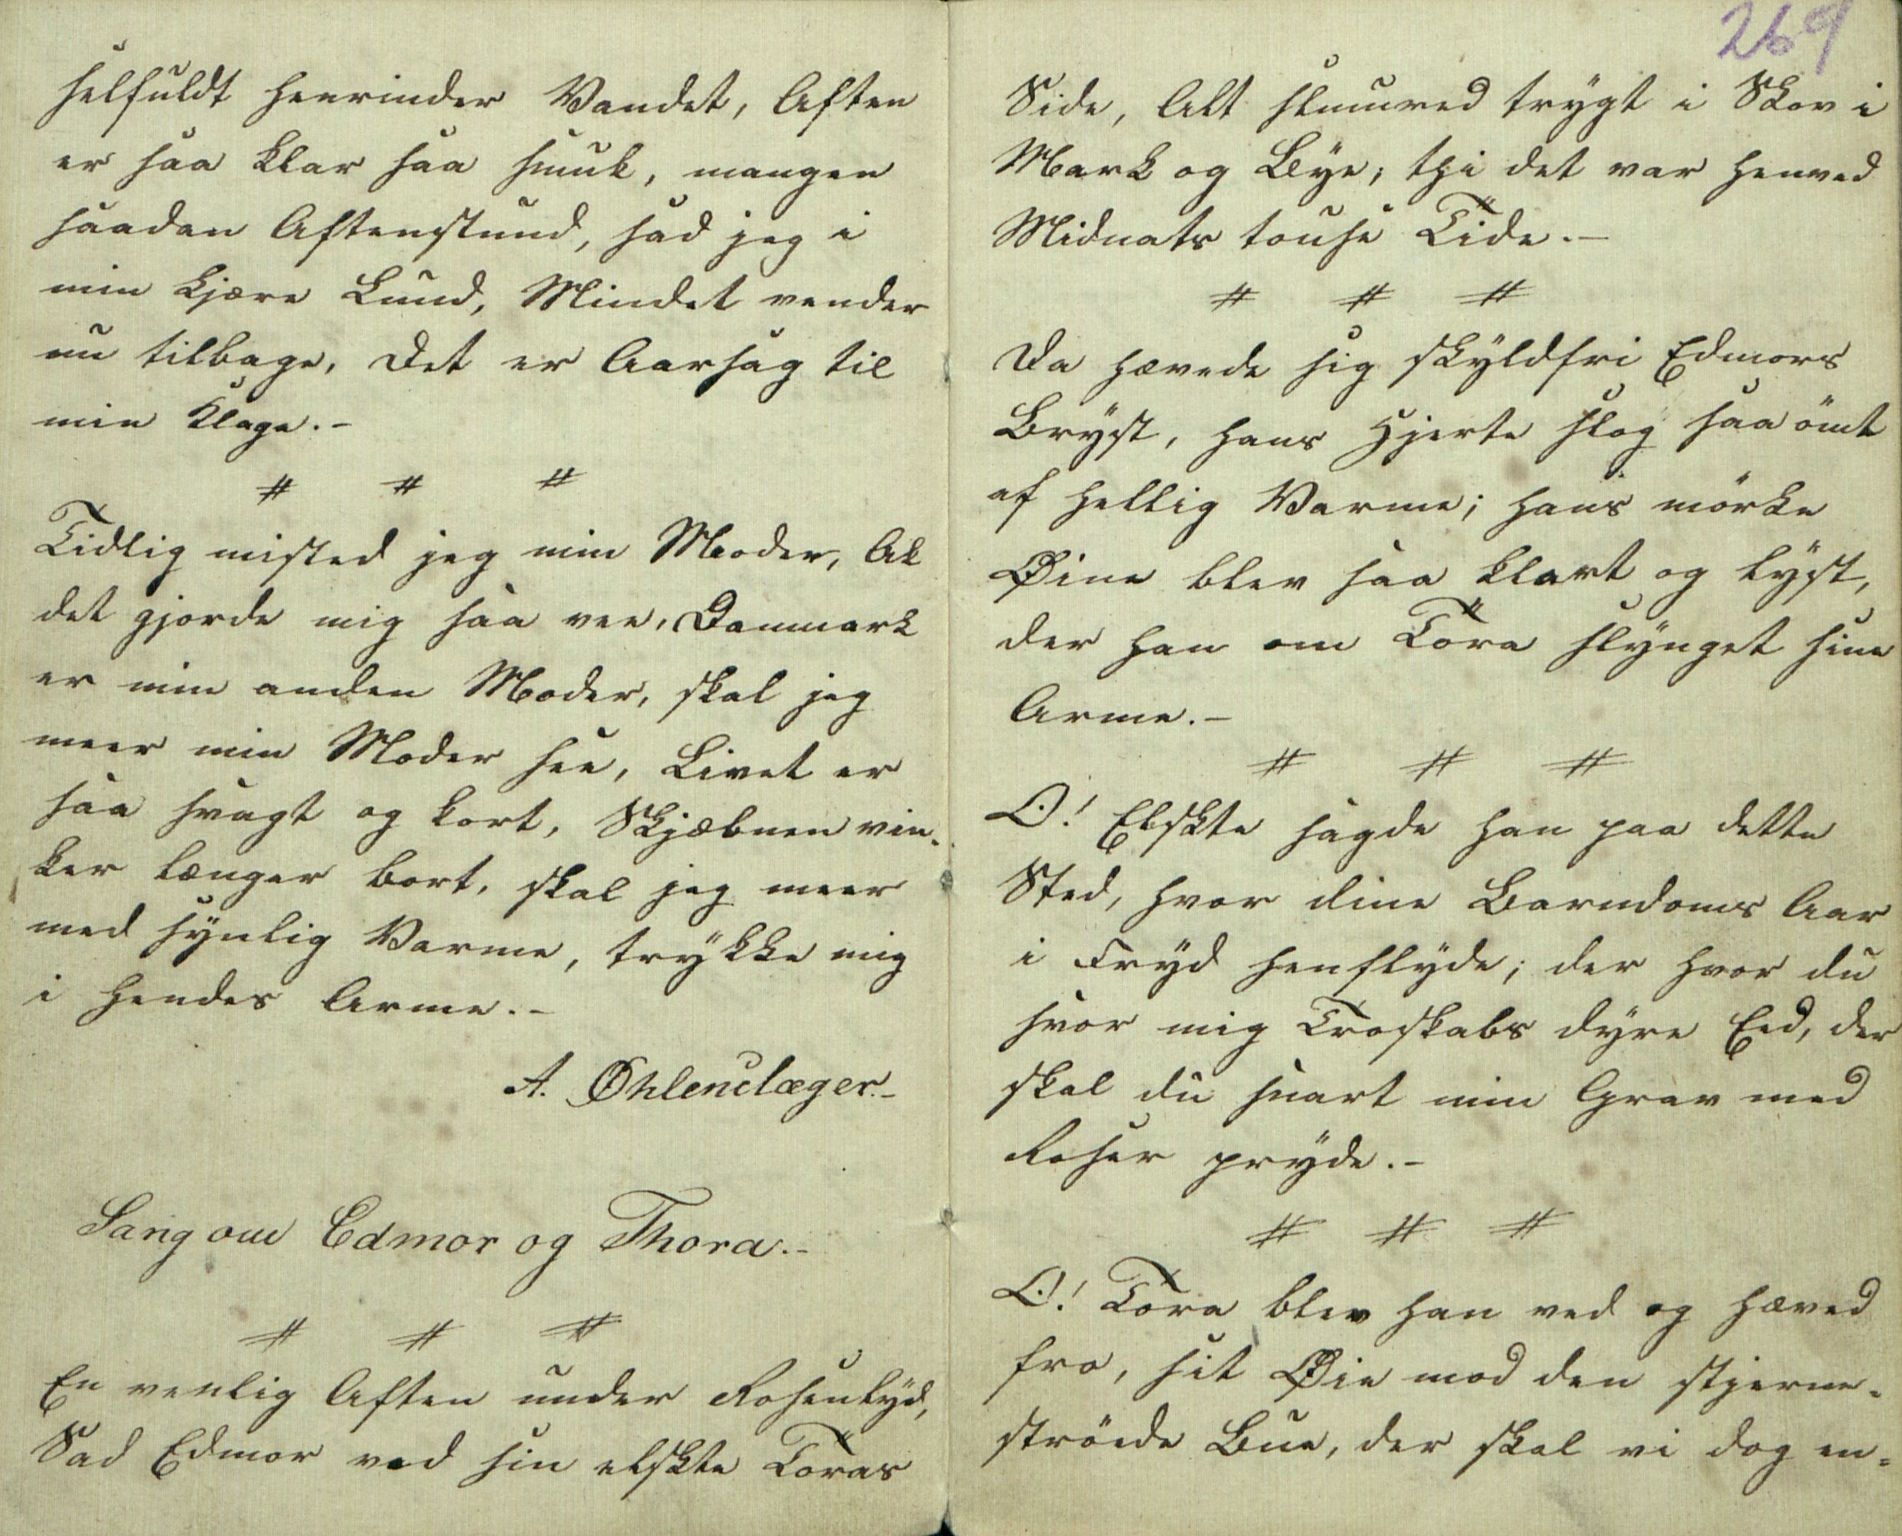 selsuldt henrinder Vandet, Aften
er saa klar saa smuk, mangen
saadan Aftenstund, sad jeg i
min kjære Lund, Mindet vender
nu tilbage, det er Aarsag til
min Klage.-
# # #
Tidlig misted jeg min Moder, Ak
det gjorde mig saa vee, Danmark
er min anden Moder, skal jeg
meer min Moder see, Livet er
saa svagt og kort, Skjæbnen vin-
ker længer bort, skal jeg meer
med synlig Varme, trykke mig
i hendes Arme.-
A. Øhlenclæger.-
Sang om Edmor og Thora.-
# # #
En venlig Aften under Rosenlyd,
Sad Edmor ved sin elskte Toras
269
Side, Alt slumred trygt i Skov i
Mark og Bye; thi det var henved
Midnats tause Tide.-
# # #
Da hævede sig skyldfri Edmors
Bryst, hans Hjerte slog saa ömt
af hellig Varme; hans mörke
Øine blev saa klart og lyst,
der han om Tora slynget sine
Arme.-
# # #
O! Elskte sagde han paa dette
Sted, hvor dine Barndoms Aar
i Fryd henflyde; der hvor du
svor mig Troskabs dyre Eed, der
skal du snart min Grav med
Roser pryde.-
# # #
O! Tora blev han ved og hæved
fro, sit Øie mod den stjerne-
ströede Bue, der skal vi dog en-